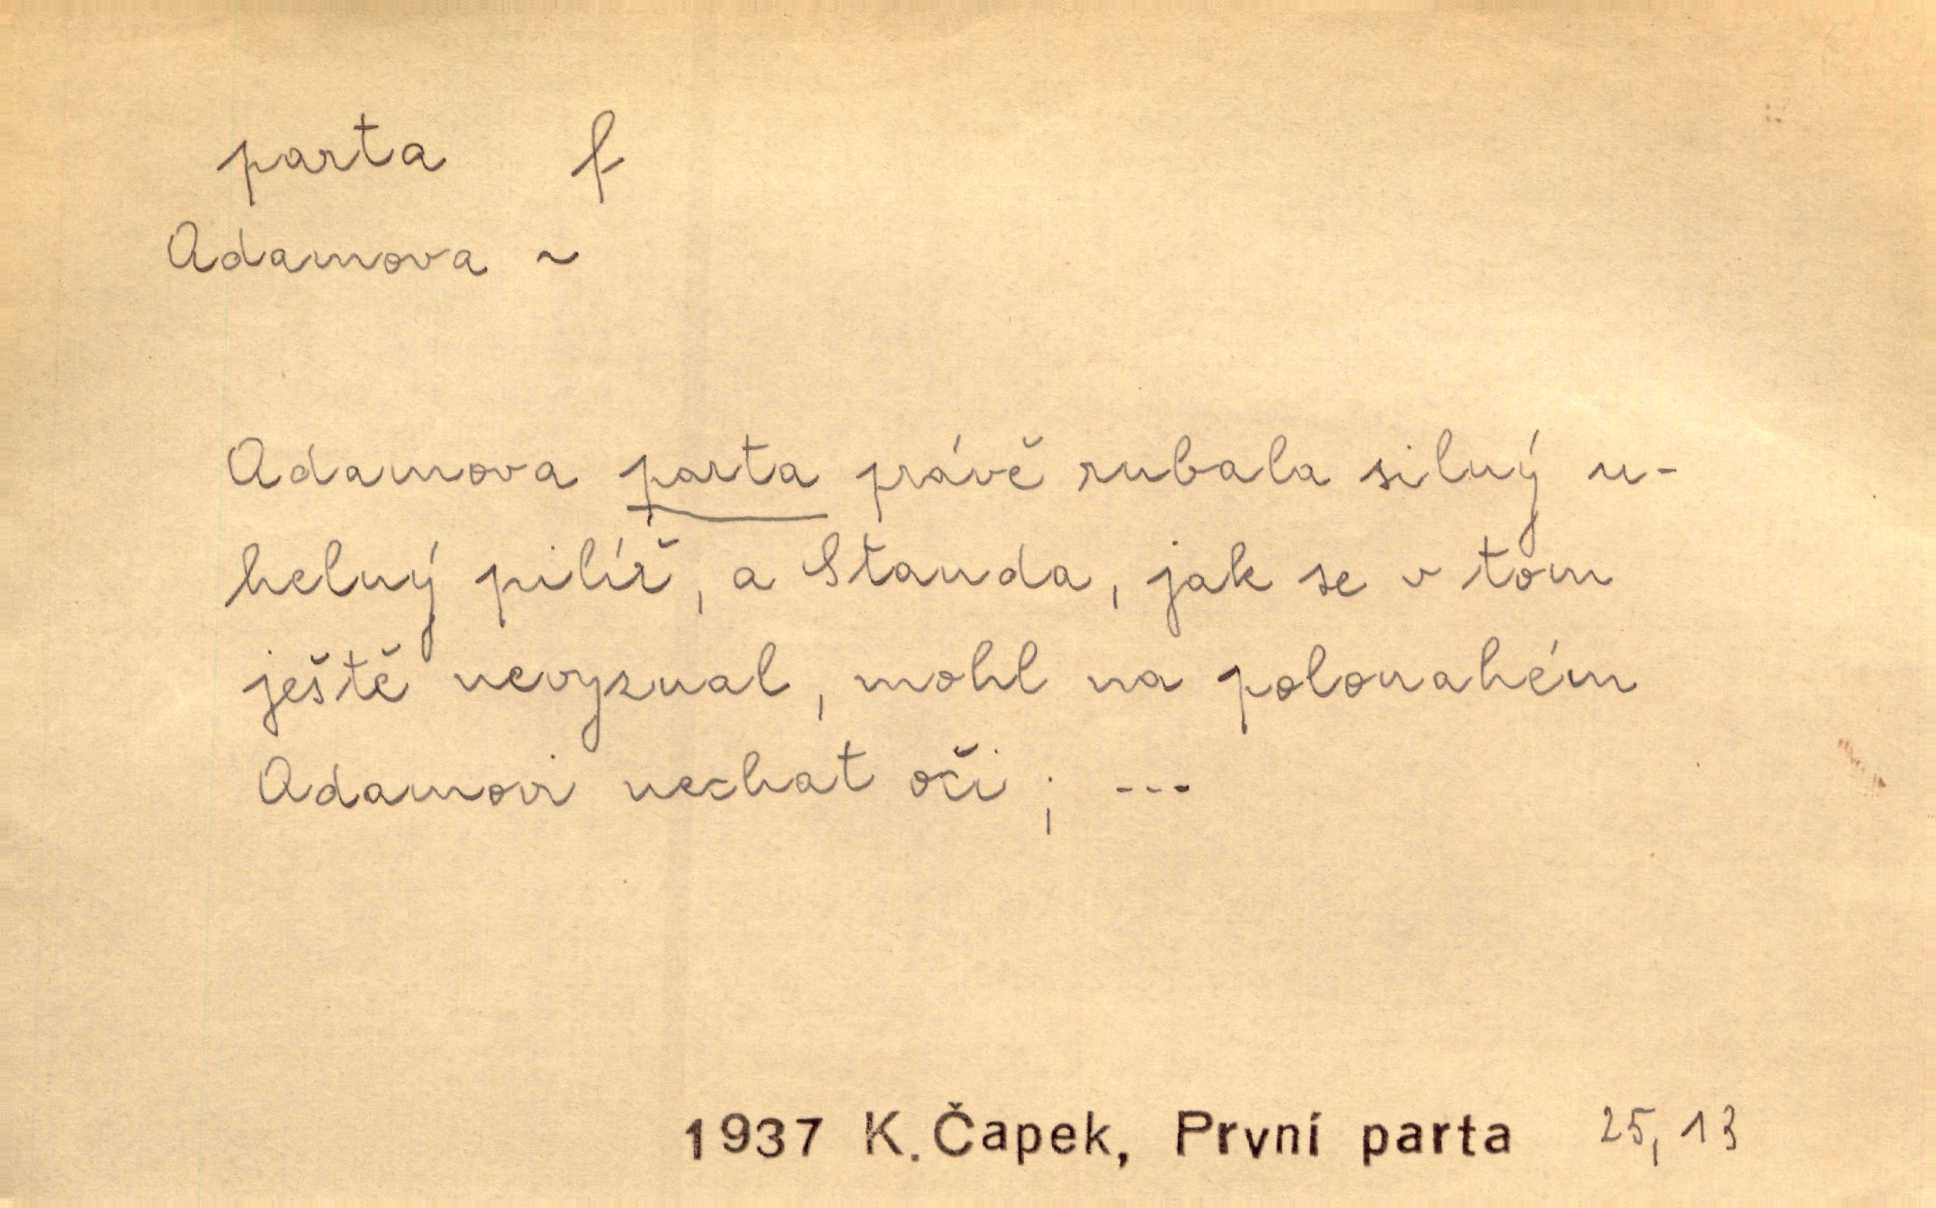 parta f
Adamova ~
Adamova parta právě rubala silný u-
helný pilíř, a Standa, jak se v tom
ještě nevyznal, mohl na polonahém
Adamovi nechat oči; ---
1937 K. Čapek, První parta 25, 13